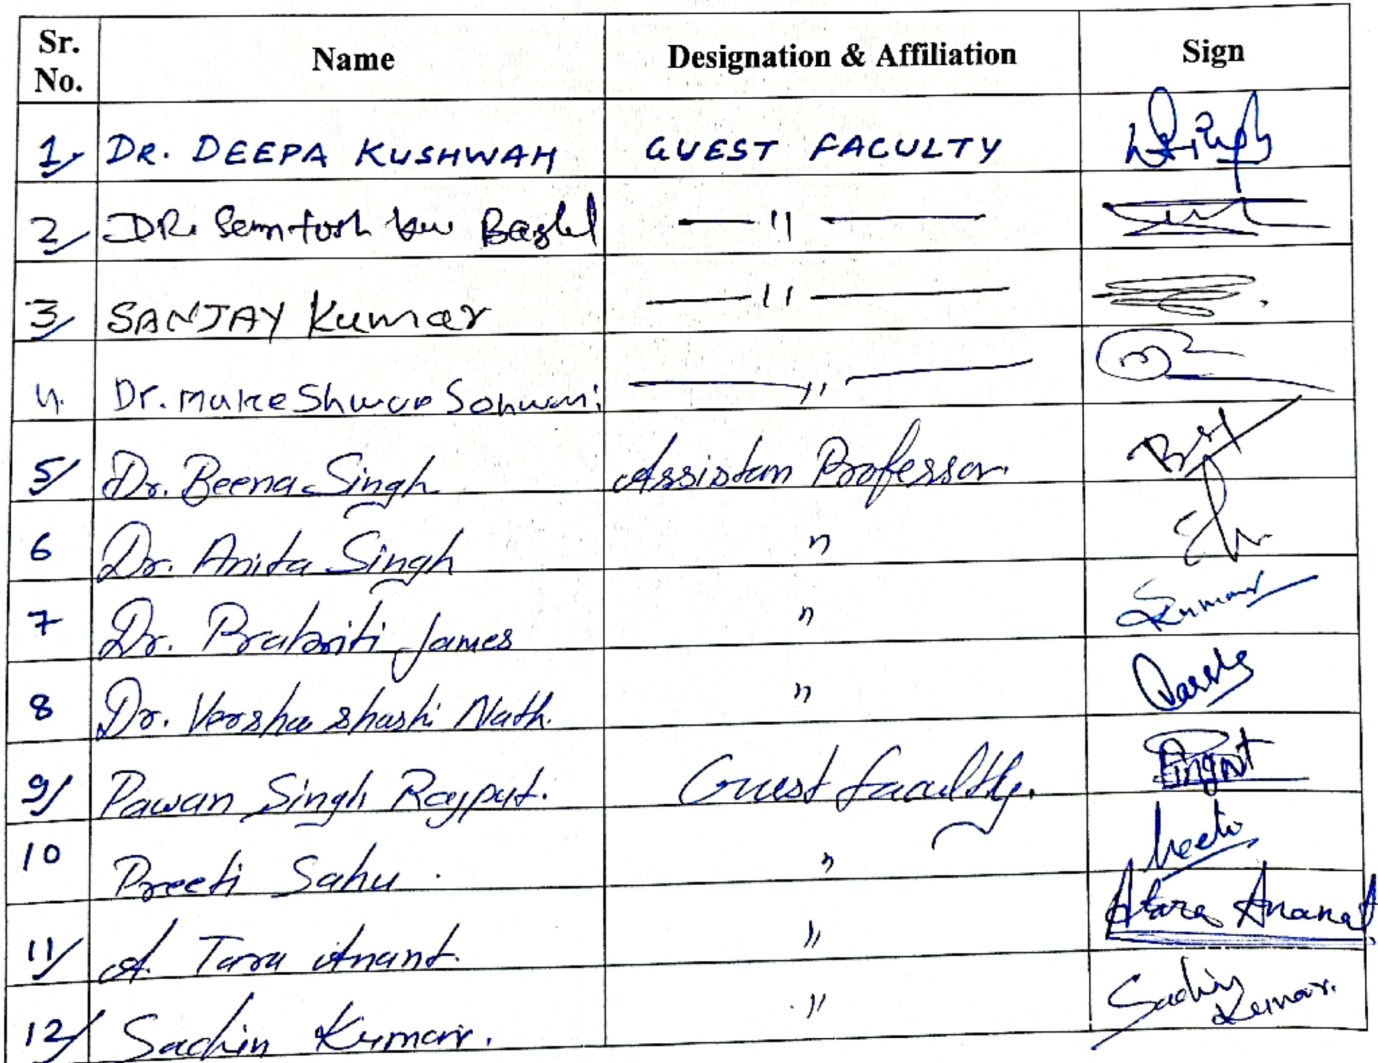 Sr. No. Name Designation & Affiliation Sign
1/ DR. DEEPA KUSHWAH GUEST FACULTY
2/ DR. Santosh ku Baghel — 11 —
3/ SANJAY Kumar — 11 —
4. Dr. mukeShwar Sonwani — 11 —
5/ Dr. Beena Singh Assistan Professor.
6 Dr. Anita Singh "
7 Dr. Prakriti James " Kumar
8 Dr. Versha shashi Nath. " Varsha
9/ Pawan Singh Rajput. Guest faculty.
10 Preeti Sahu. " Preeti
11/ A. Tara Anant. " Atara Ananat
12/ Sachin Kumar. " Sachin Kumar.